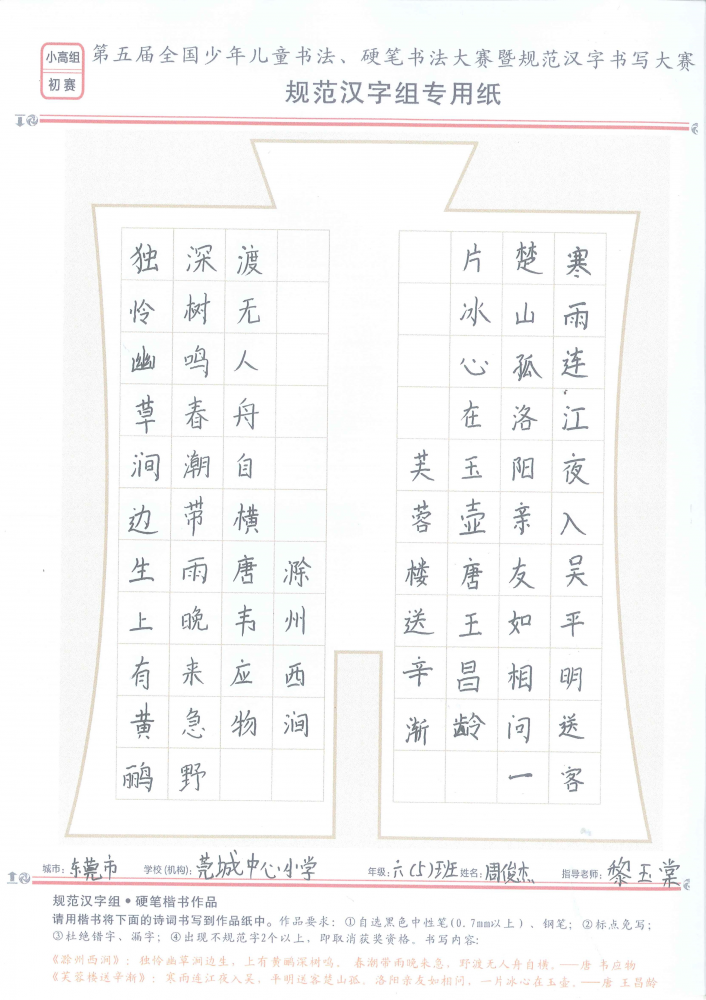 小高组
初赛
第五届全国少年儿童书法、硬笔书法大赛暨规范汉字书写大赛
规范汉字组专用纸
寒雨连江夜入吴平明送客
楚山孤洛阳亲友如相问一
片冰心在玉壶唐王昌龄
芙蓉楼送辛渐
滁州西涧
渡无人舟自横唐韦应物
深树鸣春潮带雨晚来急野
独怜幽草涧边生上有黄鹂
城市：东莞市 学校(机构)：莞城中心小学 年级：六(5)班 姓名：周俊杰 指导老师：黎玉棠
规范汉字组•硬笔楷书作品
请用楷书将下面的诗词书写到作品纸中。作品要求：①自选黑色中性笔(0.7mm以上)、钢笔；②标点免写；
③杜绝错字、漏字；④出现不规范字2个以上，即取消获奖资格。书写内容：
《滁州西涧》：独怜幽草涧边生，上有黄鹂深树鸣。 春潮带雨晚来急，野渡无人舟自横。——唐 韦应物
《芙蓉楼送辛渐》：寒雨连江夜入吴，平明送客楚山孤。洛阳亲友如相问，一片冰心在玉壶。——唐 王昌龄